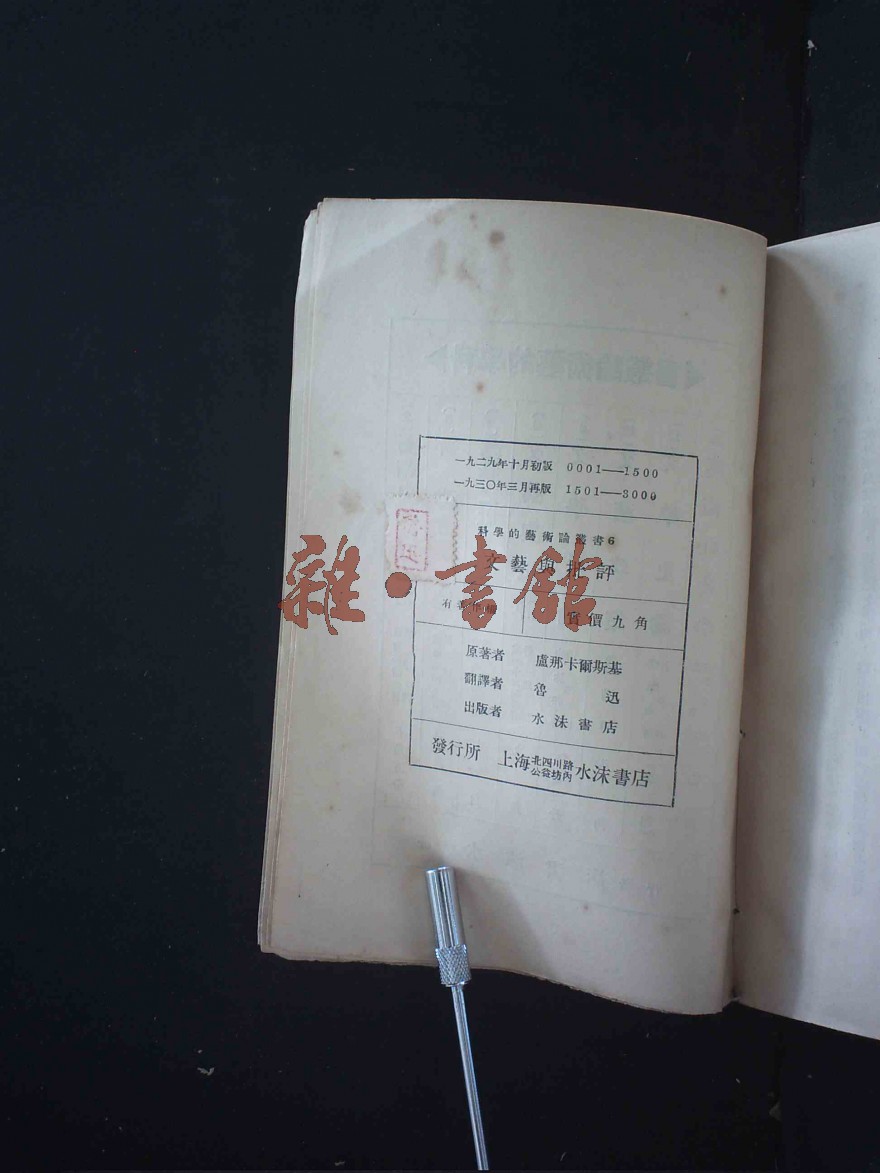 一九二九年十月初版 0001——1500
一九三〇年三月再版 1501——3000
科學的藝術論叢書6
文藝與批評
實價九角
原著者 盧那卡爾斯基
翻譯者 魯迅
出版者 水沫書店
發行所 上海北四川路公益坊內水沫書店
雜·書館